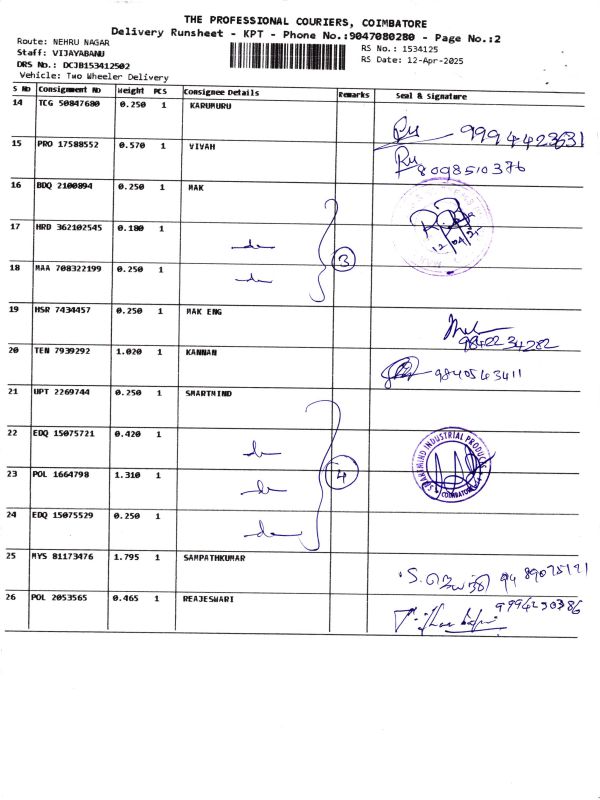 THE PROFESSIONAL COURIERS, COIMBATORE
Delivery Runsheet - KPT - Phone No.:9047080280 - Page No.:2
Route: NEHRU NAGAR
Staff: VIJAYABANU
DRS No.: DCJB153412502
Vehicle: Two Wheeler Delivery
RS No.: 1534125
RS Date: 12-Apr-2025
S No Consignment No Weight PCS Consignee Details Remarks Seal & Signature
14 TCG 50847680 0.250 1 KARUMURU
9994423631
15 PRO 17588552 0.570 1 VIVAH
8098510376
16 BDQ 2100894 0.250 1 MAK
12/04/25
17 HRD 362102545 0.180 1 do
3
18 MAA 708322199 0.250 1 do
19 HSR 7434457 0.250 1 MAK ENG
9842234282
20 TEN 7939292 1.020 1 KANNAN
9840543411
21 UPT 2269744 0.250 1 SMARTMIND
22 EDQ 15075721 0.420 1 do
INDUSTRIAL PRODUCTS
COIMBATORE
23 POL 1664798 1.310 1 do
4
24 EDQ 15075529 0.250 1 do
25 MYS 81173476 1.795 1 SAMPATHKUMAR
26 POL 2053565 0.465 1 REAJESWARI
9994230386